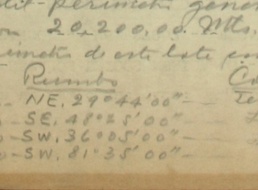 perimetro gene
20,200.00 Mts.
de este lote
Rumbo
NE. 29°44'00"
SE. 48°25'00"
SW. 36°05'00"
SW. 81°35'00"